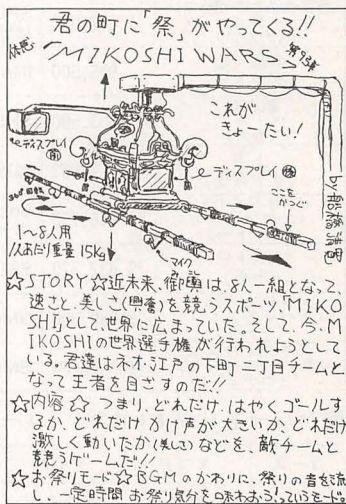 君の町に「祭」がやってくる!!
体感
"MIKOSHI WARS"
第93弾
これが
きょーたい!
ディスプレイ(前)
ディスプレイ(後)
by 船橋清電
360°回転
ここを
かつぐ
1〜8人用
1人あたり重量 15kg
マイク
☆STORY☆近未来、御輿は、8人一組となって、
速さと、美しさ(興奮)を競うスポーツ、「MIKO
SHI」として、世界に広まっていた。そして、今、M
IKOSHIの世界選手権が行われようとして
いる。君達はネオ・江戸の下町二丁目チームと
なって王者を目ざすのだ!!
☆内容☆ つまり、どれだけ、はやくゴールす
るか、どれだけ かけ声が大きいか、どれだけ
激しく動いたか(美しさ)などを、敵チームと
競うゲームだ!!
☆お祭りモード☆BGMのかわりに、祭りの音を流
し、一定時間 お祭り気分を味わおう!というモード。